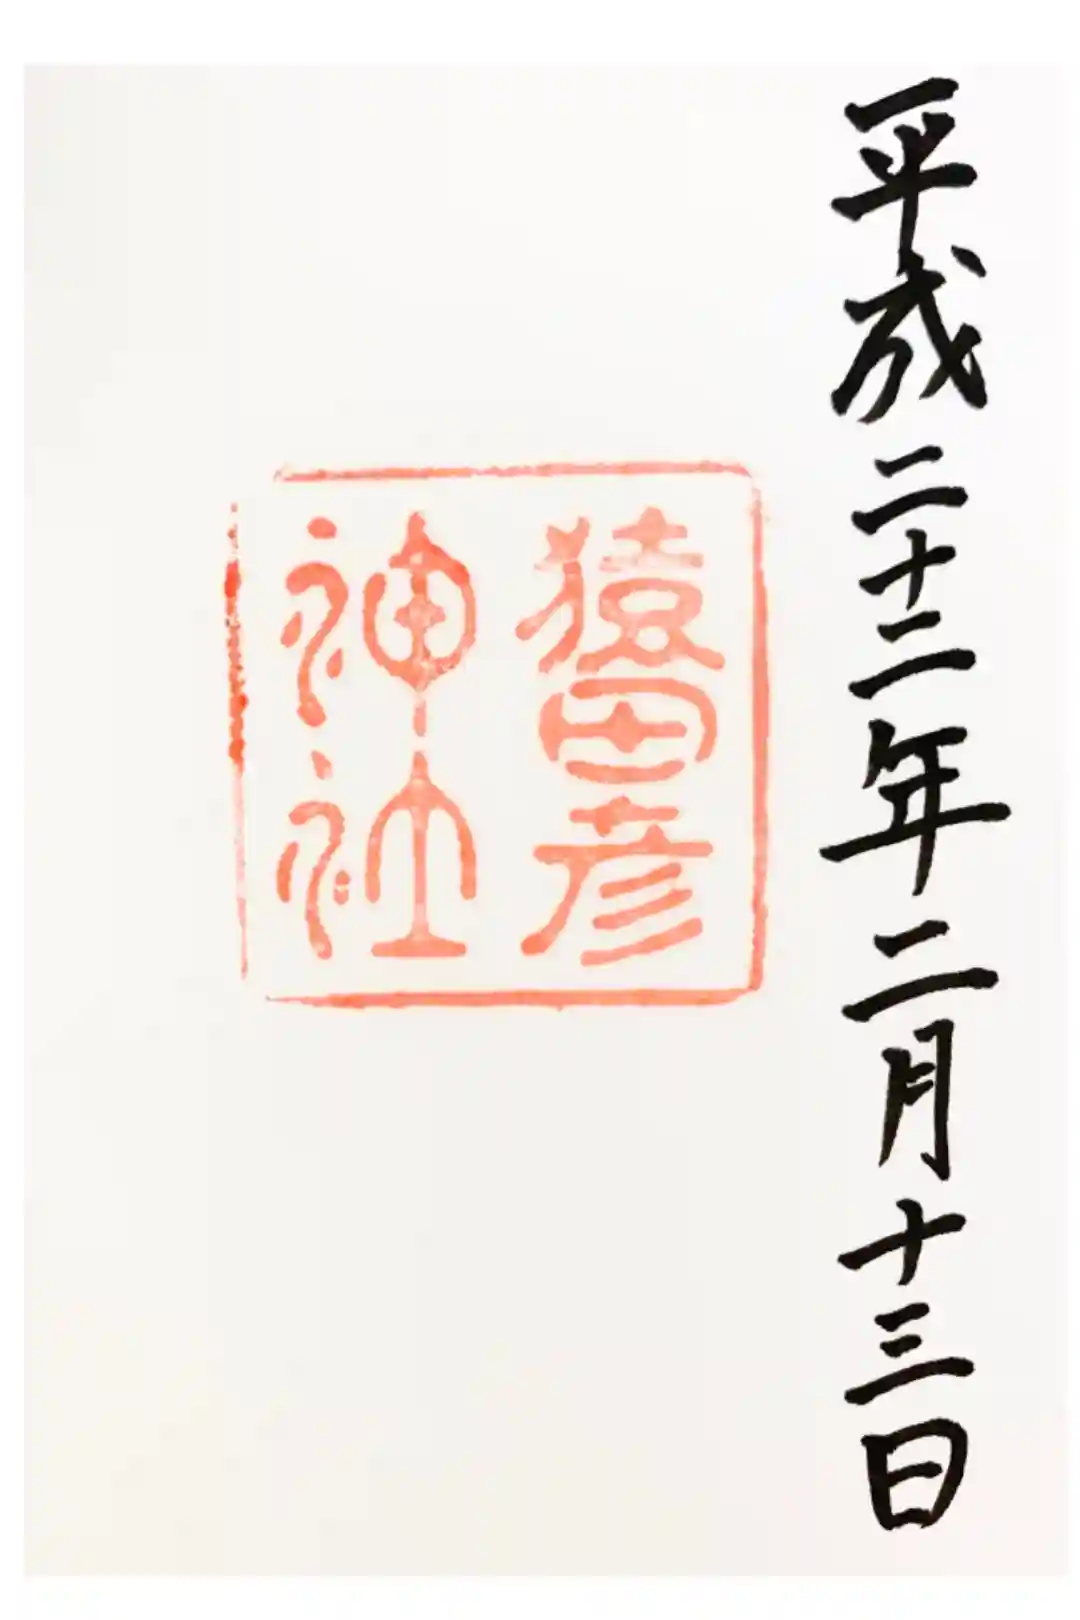 平成二十二年二月十三日
猿田彦
神社